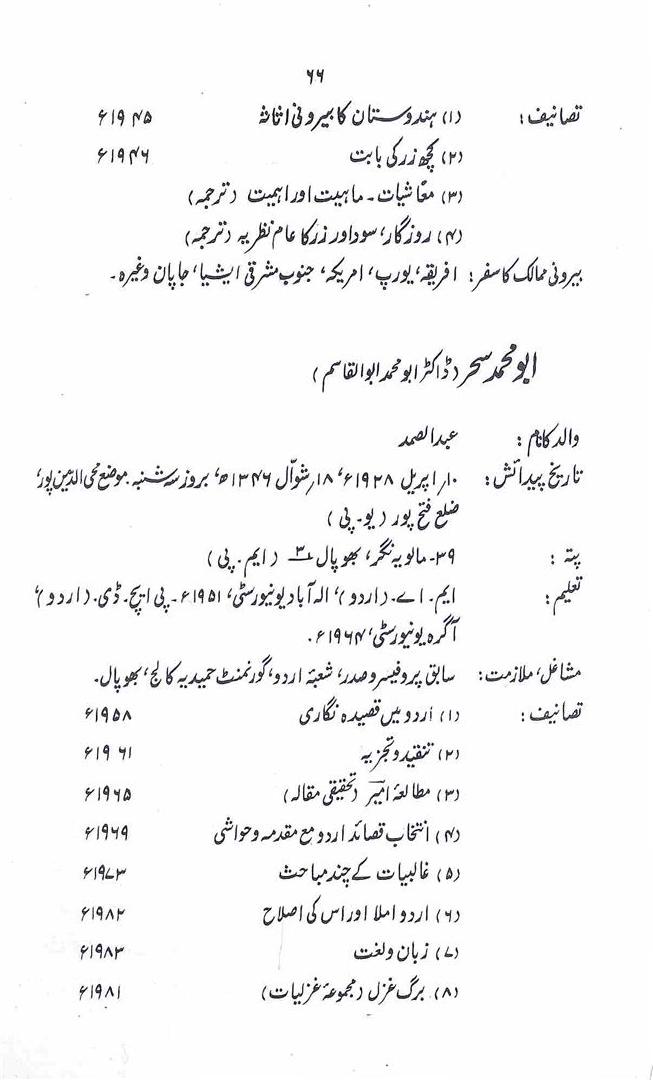 ۶۶
تصانیف : (۱) ہندوستان کا بیرونی اثاثہ ۱۹۴۵ء
(۲) کچھ زر کی بابت ۱۹۴۶ء
(۳) معاشیات۔ ماہیت اور اہمیت (ترجمہ)
(۴) روزگار، سود اور زر کا عام نظریہ (ترجمہ)
بیرونی ممالک کا سفر : افریقہ، یورپ، امریکہ، جنوب مشرقی ایشیا، جاپان وغیرہ۔
ابو محمد سحر (ڈاکٹر ابو محمد ابوالقاسم)
والد کا نام : عبدالصمد
تاریخ پیدائش : ۱۰؍اپریل ۱۹۲۸ء، ۱۸؍شوّال ۱۳۴۶ھ، بروز سہ شنبہ۔ موضع محی الدین پور،
ضلع فتح پور (یو۔ پی)
پتہ : ۳۹۔ مالویہ نگر، بھوپال ۳ (ایم۔ پی)
تعلیم : ایم۔ اے۔ (اردو)، الہ آباد یونیورسٹی، ۱۹۵۱ء۔ پی ایچ۔ ڈی۔ (اردو)،
آگرہ یونیورسٹی، ۱۹۶۴ء۔
مشاغل، ملازمت : سابق پروفیسر و صدر، شعبۂ اردو، گورنمنٹ حمیدیہ کالج، بھوپال۔
تصانیف : (۱) اُردو میں قصیدہ نگاری ۱۹۵۸ء
(۲) تنقید و تجزیہ ۱۹۶۱ء
(۳) مطالعۂ امیرؔ (تحقیقی مقالہ) ۱۹۶۵ء
(۴) انتخاب قصائد اردو مع مقدمہ و حواشی ۱۹۶۹ء
(۵) غالبیات کے چند مباحث ۱۹۷۳ء
(۶) اردو املا اور اس کی اصلاح ۱۹۸۲ء
(۷) زبان و لغت ۱۹۸۳ء
(۸) برگ غزل (مجموعۂ غزلیات) ۱۹۸۱ء